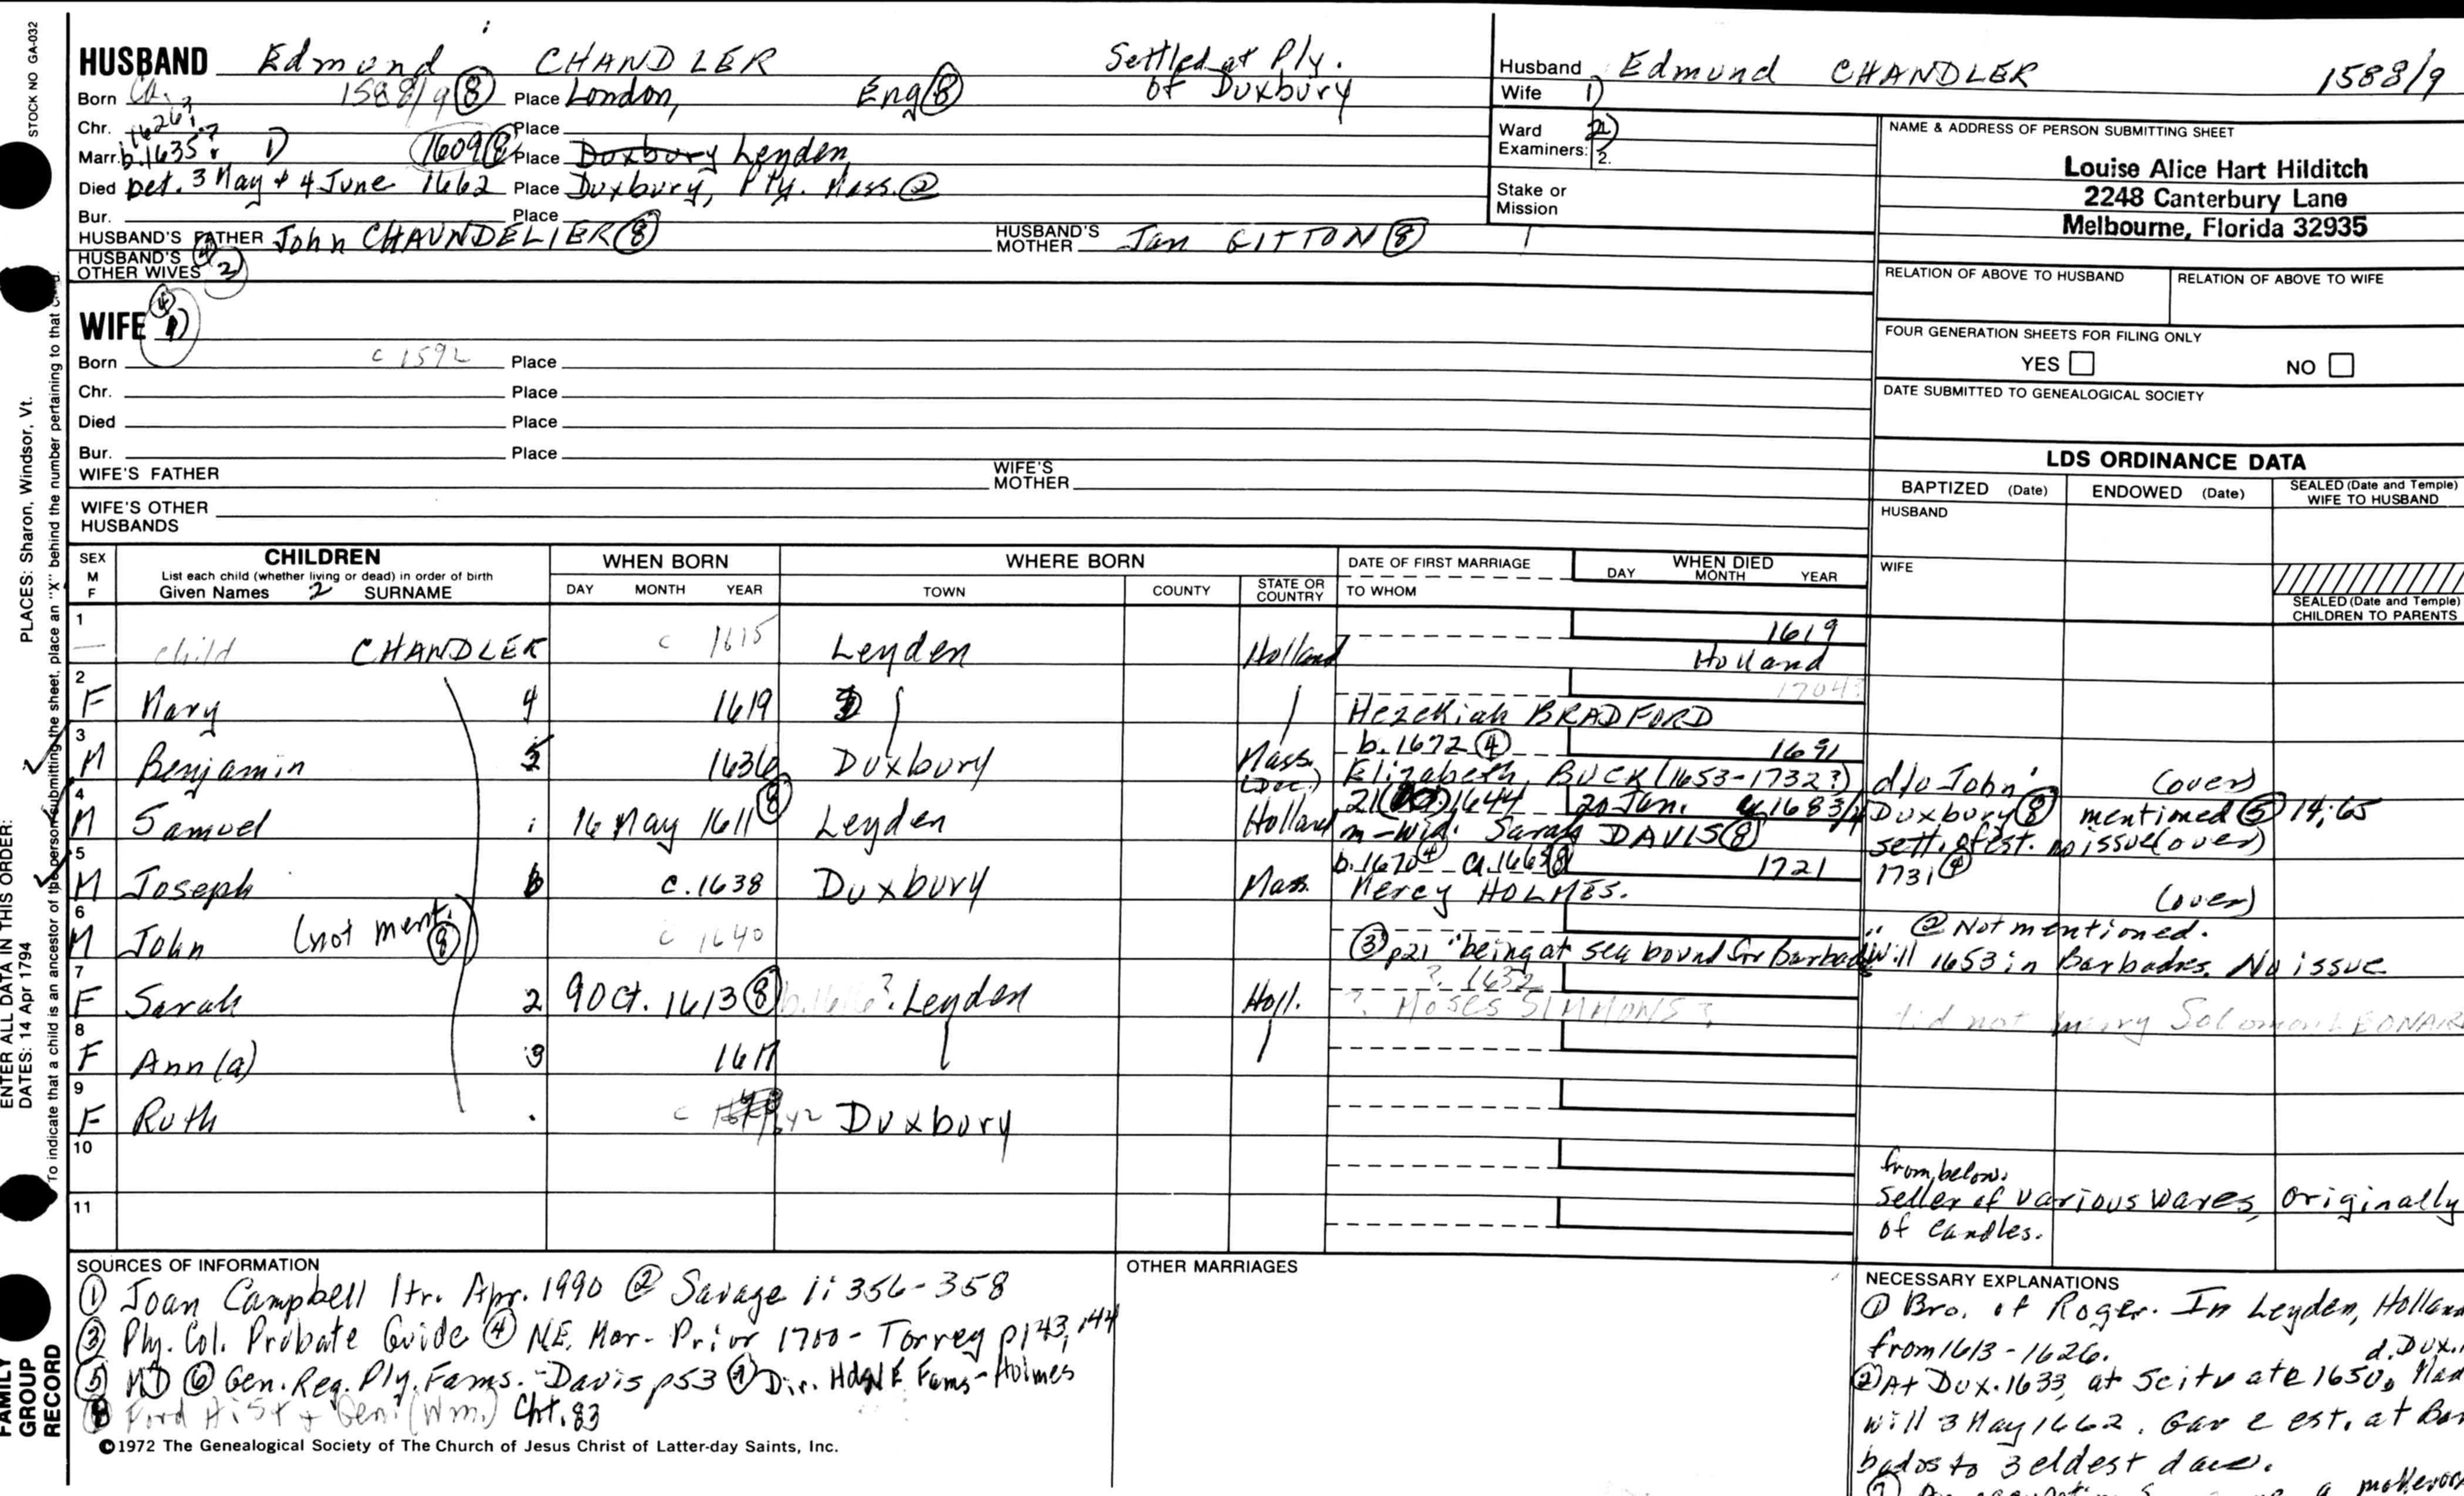 STOCK NO GA-032
PLACES: Sharon, Windsor, Vt.
ENTER ALL DATA IN THIS ORDER:
DATES: 14 Apr 1794
To indicate that a child is an ancestor of the person submitting the sheet, place an "X" behind the number pertaining to that
FAMILY
GROUP
RECORD
HUSBAND Edmund CHANDLER Settled at Ply.
Born Ca. 1588/9 (8) Place London, Eng (8) of Duxbury
Chr. Place
Marr. b. 1635? 1) 1609 (8) Place Duxbury Leyden,
Died bet. 3 May + 4 June 1662 Place Duxbury, Ply. Mass. (2)
Bur. Place
HUSBAND'S FATHER John CHAUNDELIER (8) HUSBAND'S MOTHER Jan GITTON (8)
HUSBAND'S OTHER WIVES (4) 2)
WIFE (4) 1)
Born c 1592 Place
Chr. Place
Died Place
Bur. Place
WIFE'S FATHER WIFE'S MOTHER
WIFE'S OTHER HUSBANDS
Husband Edmund CHANDLER 1588/9
Wife 1)
Ward 2)
Examiners: 2.
Stake or
Mission
NAME & ADDRESS OF PERSON SUBMITTING SHEET
Louise Alice Hart Hilditch
2248 Canterbury Lane
Melbourne, Florida 32935
RELATION OF ABOVE TO HUSBAND RELATION OF ABOVE TO WIFE
FOUR GENERATION SHEETS FOR FILING ONLY
YES NO
DATE SUBMITTED TO GENEALOGICAL SOCIETY
LDS ORDINANCE DATA
BAPTIZED (Date) ENDOWED (Date) SEALED (Date and Temple) WIFE TO HUSBAND
HUSBAND
WIFE
SEALED (Date and Temple) CHILDREN TO PARENTS
SEX M F CHILDREN WHEN BORN WHERE BORN DATE OF FIRST MARRIAGE WHEN DIED
List each child (whether living or dead) in order of birth
Given Names 2 SURNAME DAY MONTH YEAR TOWN COUNTY STATE OR COUNTRY TO WHOM DAY MONTH YEAR
1 child CHANDLER c 1615 Leyden Holland 1619
Holland
2 F Mary 4 1619 1704?
Hezekiah BRADFORD
3 M Benjamin 5 1636 Duxbury Mass. b. 1672 (4) 1691
Elizabeth BUCK (1653-1732?) d/o John (over)
4 M Samuel 16 May 1611 (8) Leyden Holland 21 1644 20 Jan. 1683/4 Duxbury (8) mentioned (5) 14:65
m - wid. Sarah DAVIS (8) sett. of est. no issue (over)
5 M Joseph 6 c. 1638 Duxbury Mass. b. 1670 (4) Ca. 1665 (8) 1721 1731 (4)
Mercy HOLMES. (over)
6 M John (not ment. (8)) c 1640 (2) Not mentioned.
(3) p21 "being at sea bound for Barbad Will 1653 in Barbados. No issue
7 F Sarah 2 9 Oct. 1613 (8) b. 1616? Leyden Holl. ? 1632
? MOSES SIMMONS ? did not marry Solomon LEONARD
8 F Ann (a) 3 1617
9 F Ruth c 1642 Duxbury
10
11
from below.
Seller of various wares, originally
of candles.
SOURCES OF INFORMATION
(1) Joan Campbell ltr. Apr. 1990 (2) Savage i: 356-358
(3) Ply. Col. Probate Guide (4) N.E. Mar. Prior 1700 - Torrey p143, 144
(5) MD (6) Gen. Reg. Ply. Fams. - Davis p53 (7) Dir. Hds N E Fams - Holmes
(8) Ford Hist + Gen. (Wm.) Cht. 83
©1972 The Genealogical Society of The Church of Jesus Christ of Latter-day Saints, Inc.
OTHER MARRIAGES
NECESSARY EXPLANATIONS
(1) Bro. of Roger. In Leyden, Holland
from 1613-1626. d. Dux.
(2) At Dux. 1633, at Scituate 1650. Mad
will 3 May 1662. Gave est. at Bar
bados to 3 eldest daus.